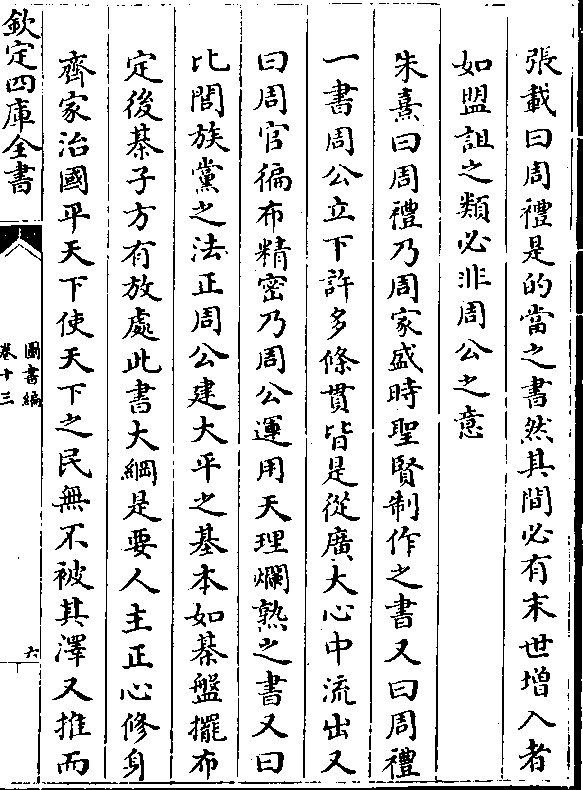 張載曰周禮是的當之書然其間必有末世增入者
如盟詛之類必非周公之意
朱熹曰周禮乃周家盛時聖賢制作之書又曰周禮
一書周公立下許多條貫皆是從廣大心中流出又
曰周官徧布精密乃周公運用天理爛熟之書又曰
比閭族黨之法正周公建大平之基本如棊盤擺布
定後棊子方有放處此書大綱是要人主正心修身
齊家治國平天下使天下之民無不被其澤又推而
欽定四庫全書
圖書編
卷十三
六